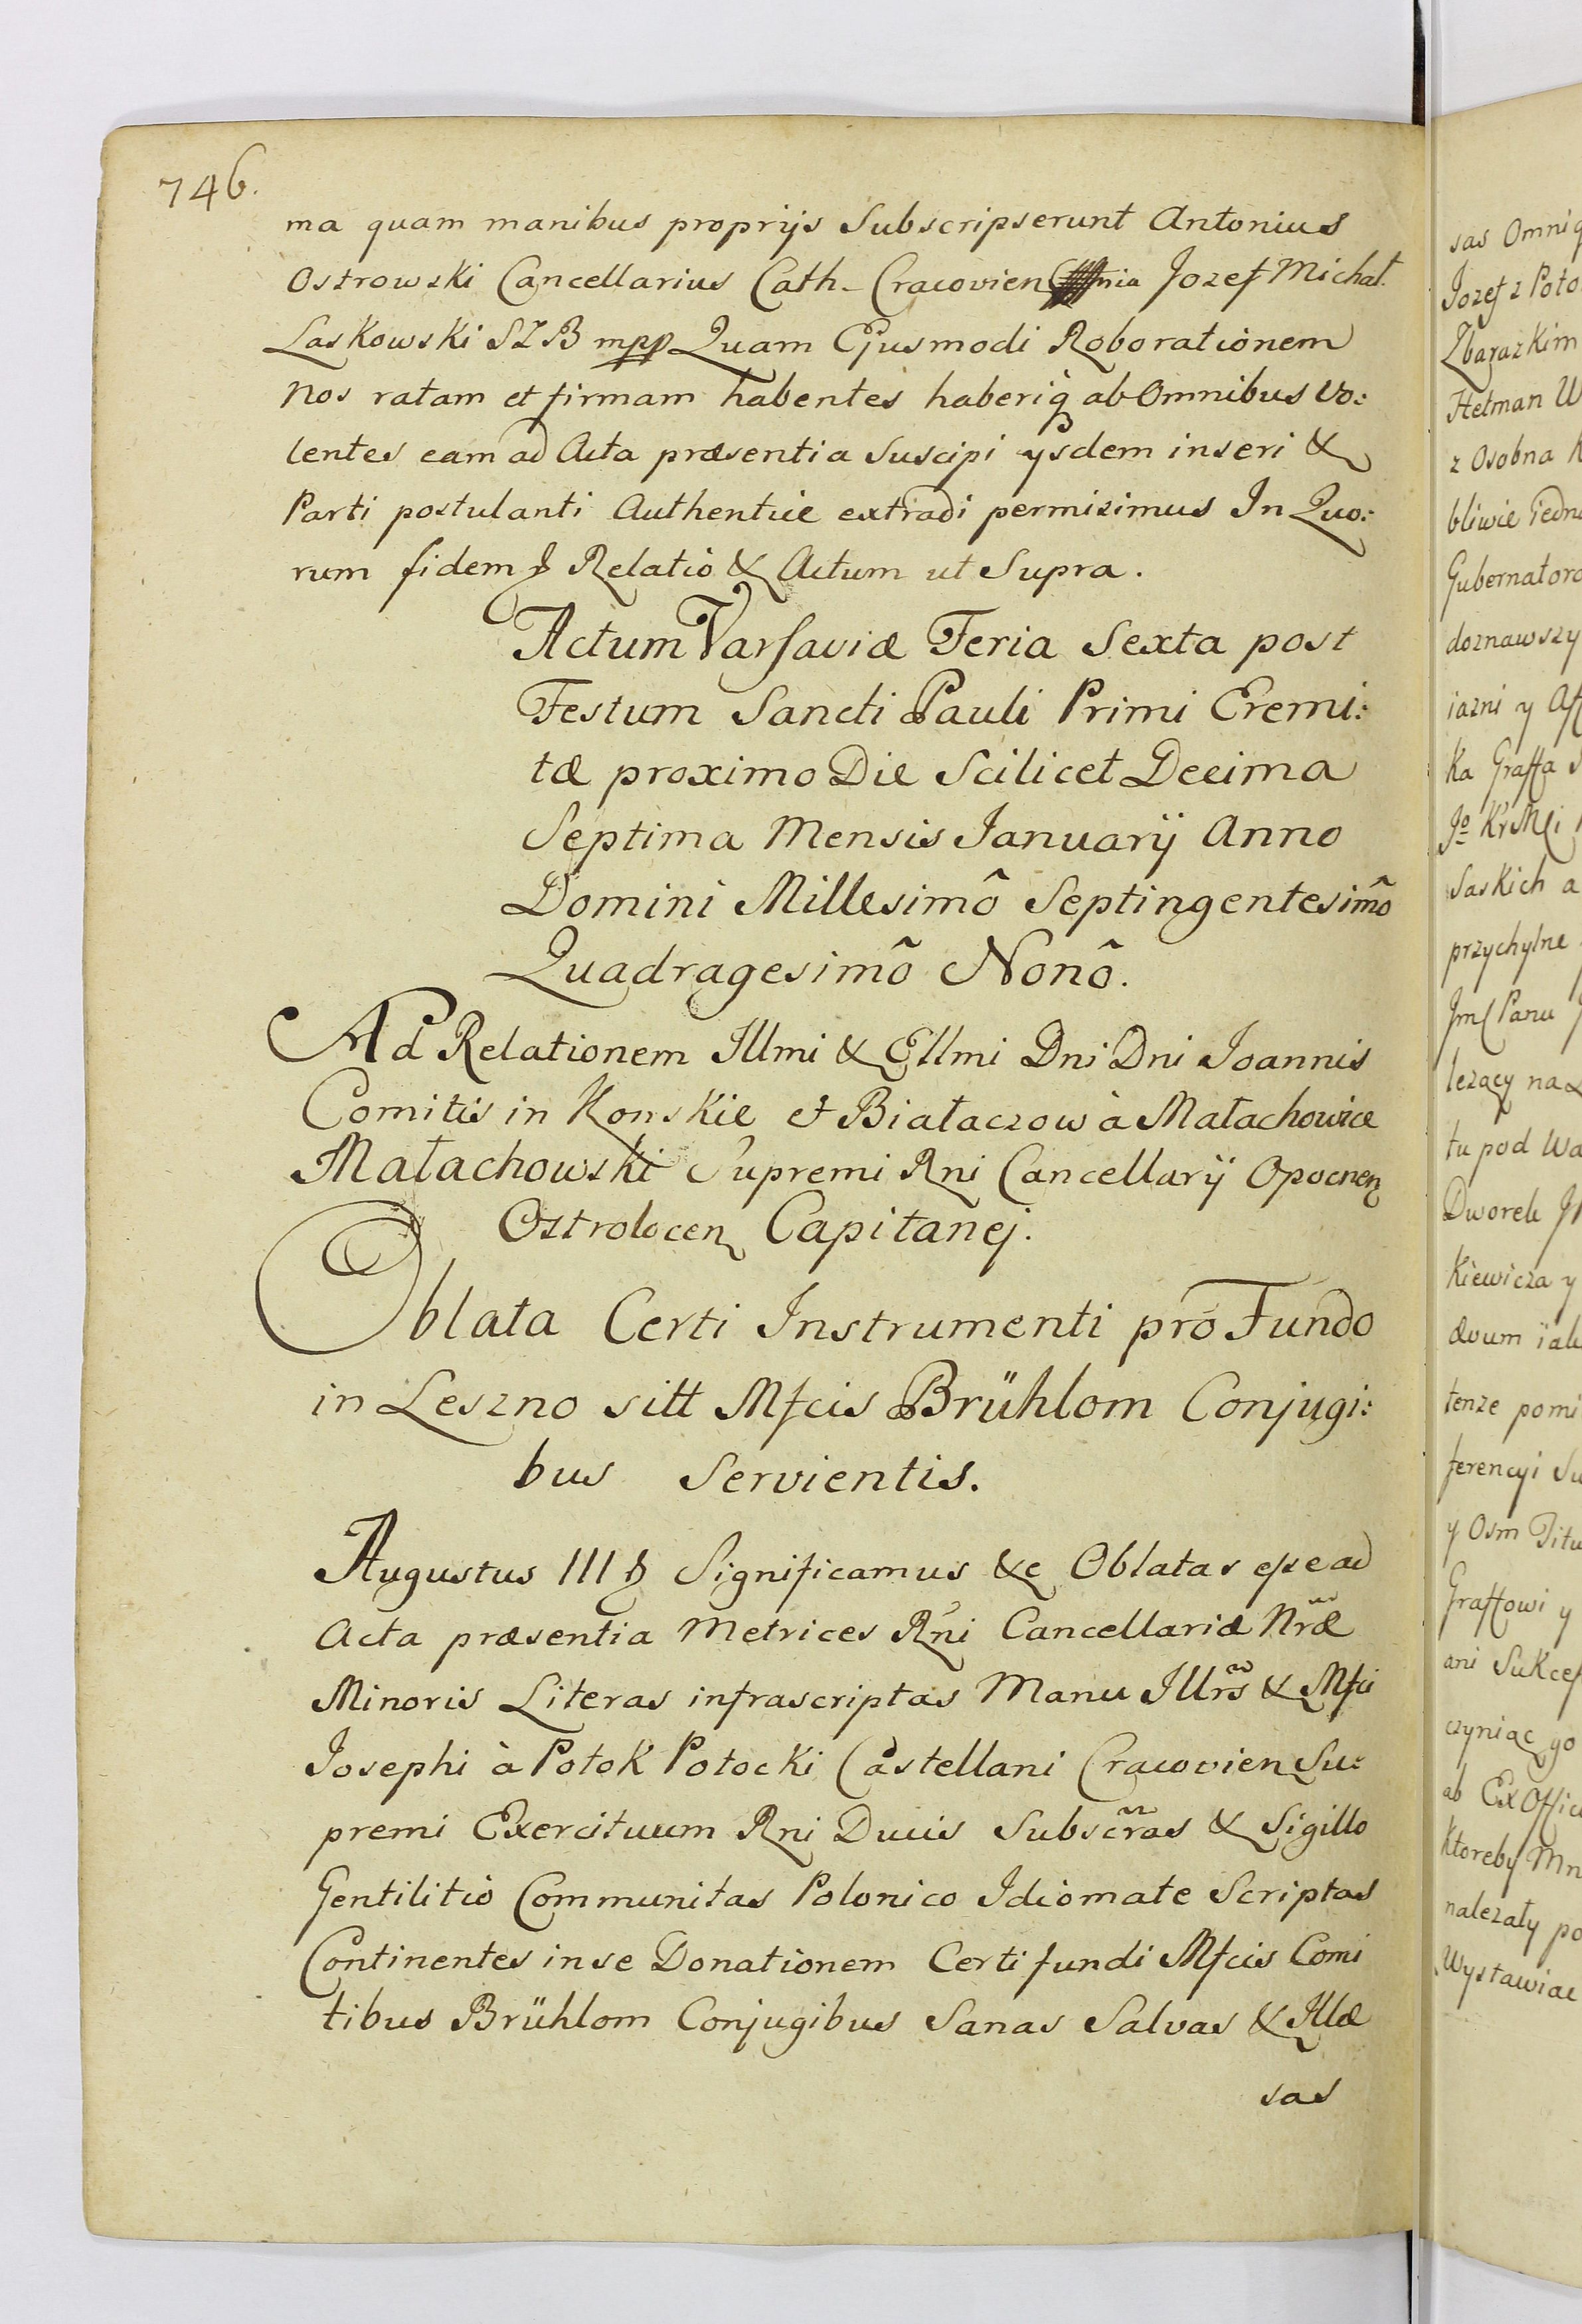 746.
ma quam manibus proprijs Subscripserunt Antonius
Ostrowski Cancellarius Cath- Cracovien Jozef Michał
Laskowski SZB mpp Quam Ejusmodi Roborationem
Nos ratam et firmam habentes haberiq ab Omnibus Vo:
lentes eam ad Acta præsentia Suscipi ysdem inseri &
Parti postulanti Authentice extradi permisimus In Quo:
rum fidem Relatio & Actum ut Supra.
Actum Varsaviæ Feria Sexta post
Festum Sancti Pauli Primi Eremi:
tæ proximo Die Scilicet Decima
Septima Mensis Januarÿ Anno
Domini Millesimô Septingentesimô
Quadragesimô Nonô.
Ad Relationem Illmi & Ellmi Dni Dni Joannis
Comitis in Konskie et Białaczow à Małachowice
Małachowski Supremi Rni Cancellarÿ Opocnen
Ostrolocen Capitanej.
Oblata Certi Instrumenti pro Fundo
in Leszno sitt Mfcis Brühlom Conjugi:
bus Servientis.
Augustus III Significamus &c Oblatas esse ad
Acta præsentia Metrices Rni Cancellariæ Nræ
Minoris Literas infrascriptas Manu Illrs & Mfci
Josephi à Potok Potocki Castellani Cracovien Su:
premi Exercituum Rni Ducis Subscras & Sigillo
Gentilitio Communitas Polonico Idiomate Scriptas
Continentes in se Donationem Certi fundi Mfcis Comi
tibus Brühlom Conjugibus Sanas Salvas & Illæ
sas
sas Omniq
Jozef z Poto
Zbarazkim
Hetman W
z Osobna K
bliwie iedn
Gubernatoro
doznawszy
iazni y Aff
Ka Graffa S
Jo KrMci
Saskich a
przychylne
Jmc Panu
lezący na
tu pod Wa
Dworek J
Kiewicza y
ævum iak
tenze pomi
ferencyi Su
y Osm Titu
Graffowi y
ani Sukcef
czyniąc go
ab Ex Offic
Ktoreby Mn
nalezały po
Wystawiac